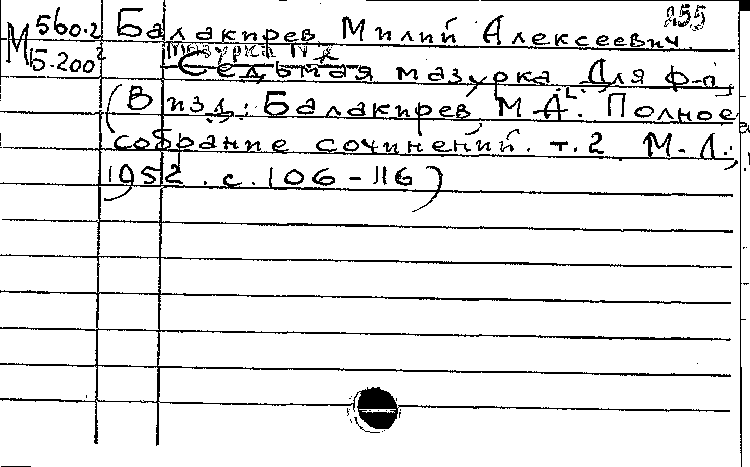 255
М 560.2 Балакирев Милий Алексеевич.
Б.200² Мазурка N
Седьмая мазурка. Для ф-п.
(В изд.: Балакирев, М.А. Полное
собрание сочинений. т.2. М.-Л.,
1952. с. 106-116)